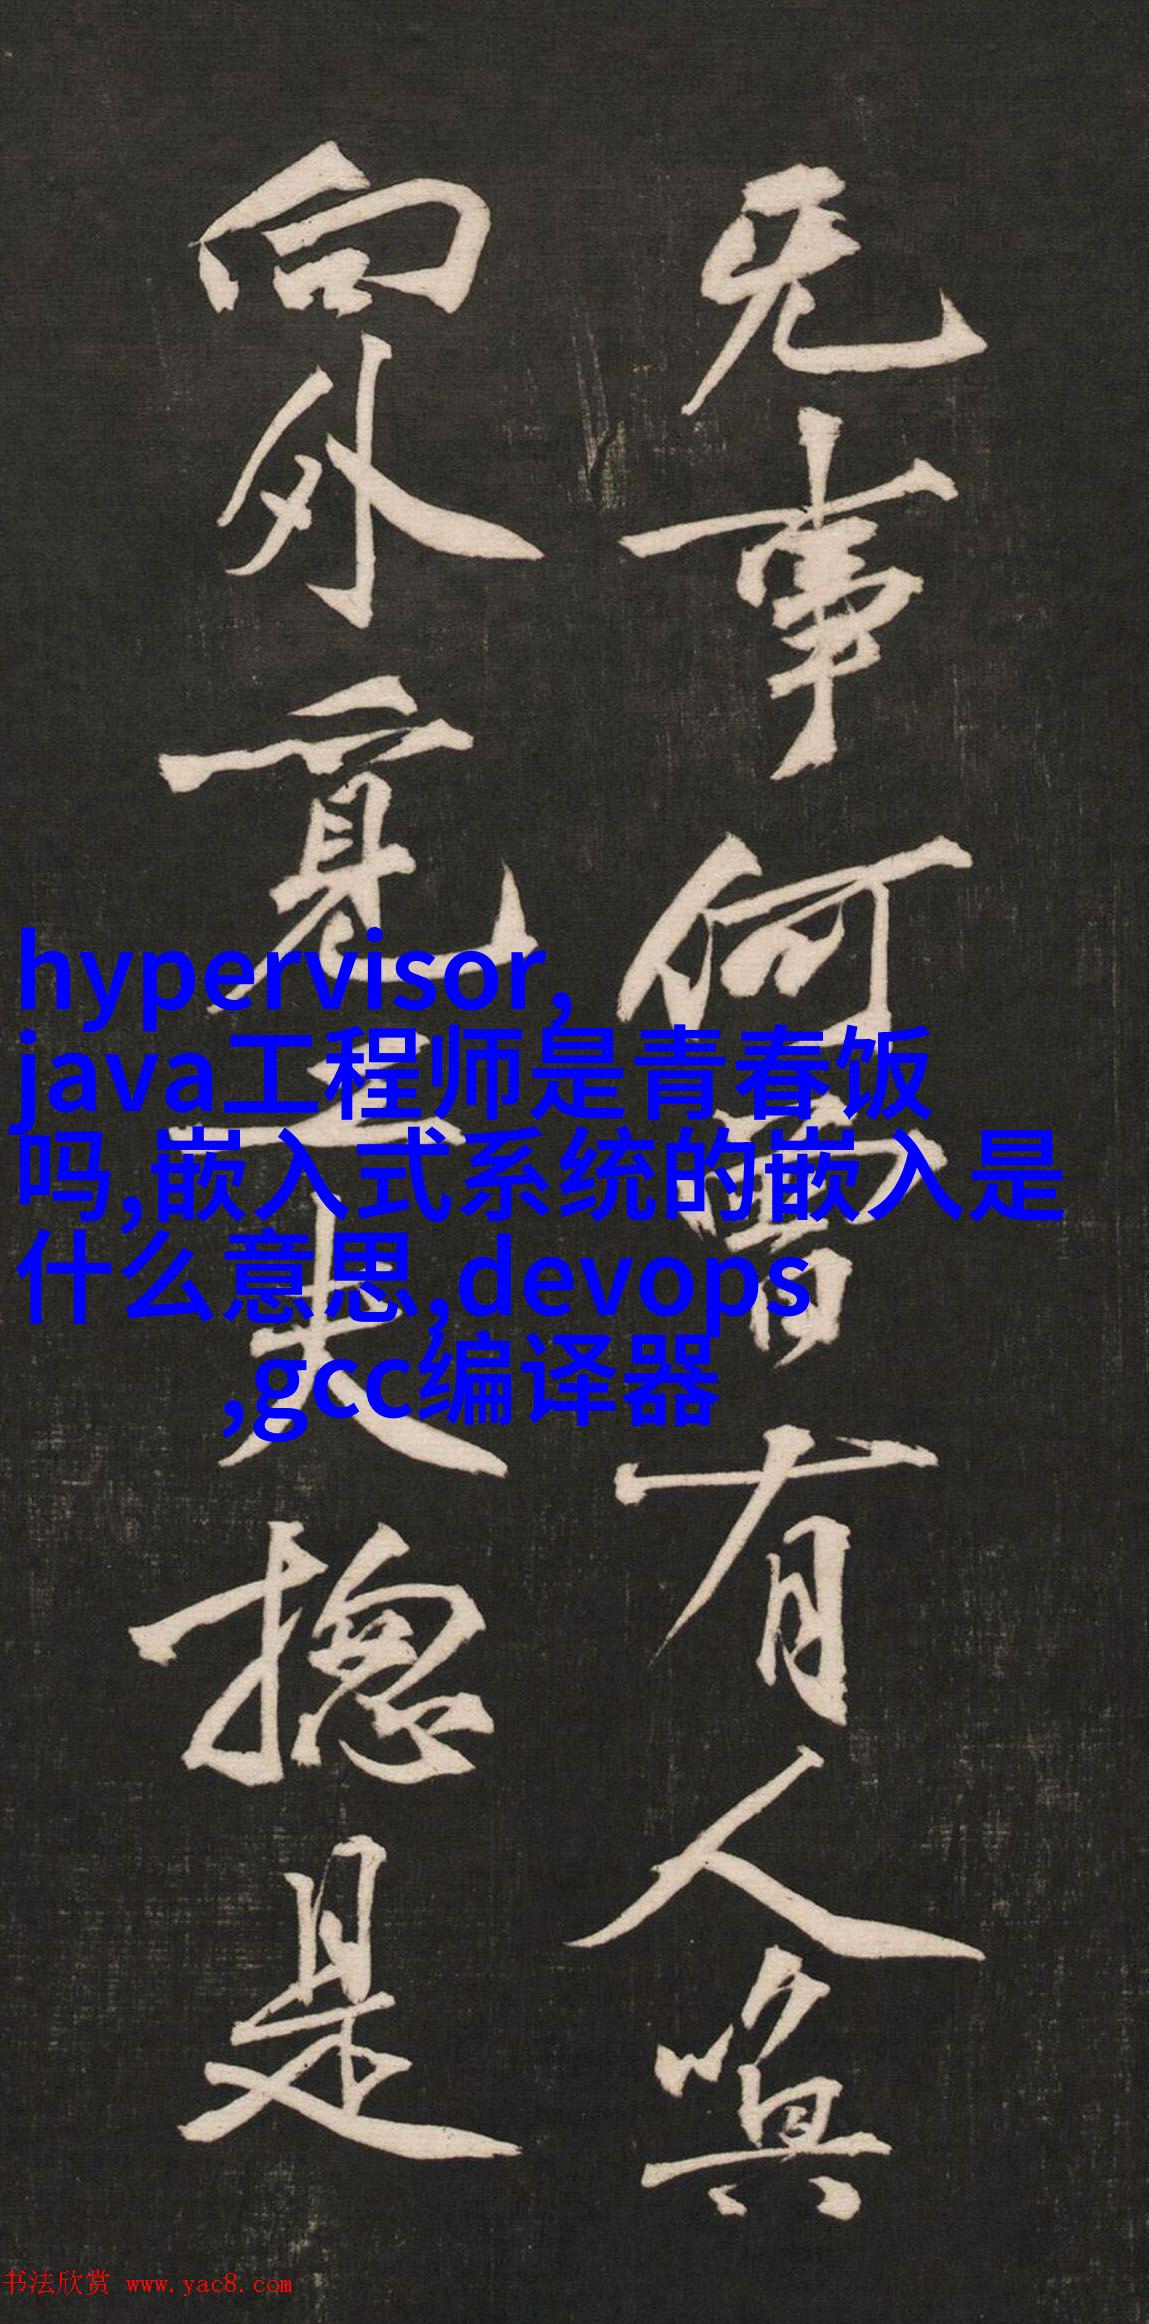 无事何曾有人
向外覓工夫揔是
hypervisor,
java工程师是青春饭
吗,嵌入式系统的嵌入是
什么意思,devops
,gcc编译器
书法欣赏 www.yac8.com